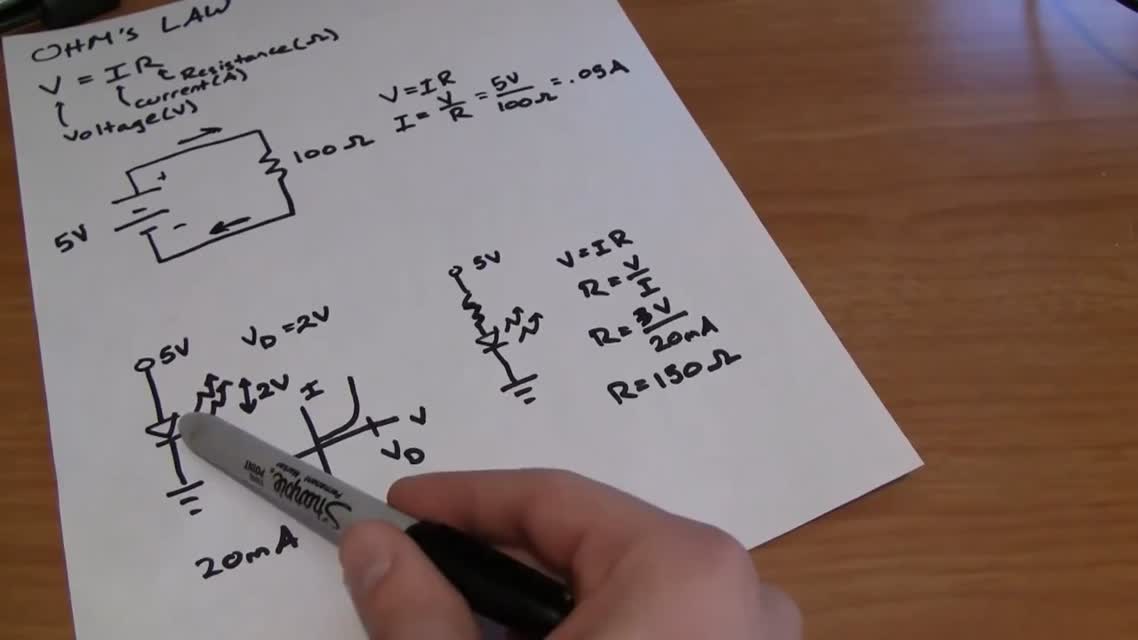 OHM'S LAW
V = IR
Resistance(Ω)
current(A)
Voltage(V)
V=IR
I = V/R = 5V/100Ω = .05A
100Ω
+
-
5V
5V
V=IR
R=V/I
R=3V/20mA
R=150Ω
5V
VD=2V
2V
I
V
VD
20mA
Sharpie
Permanent Marker